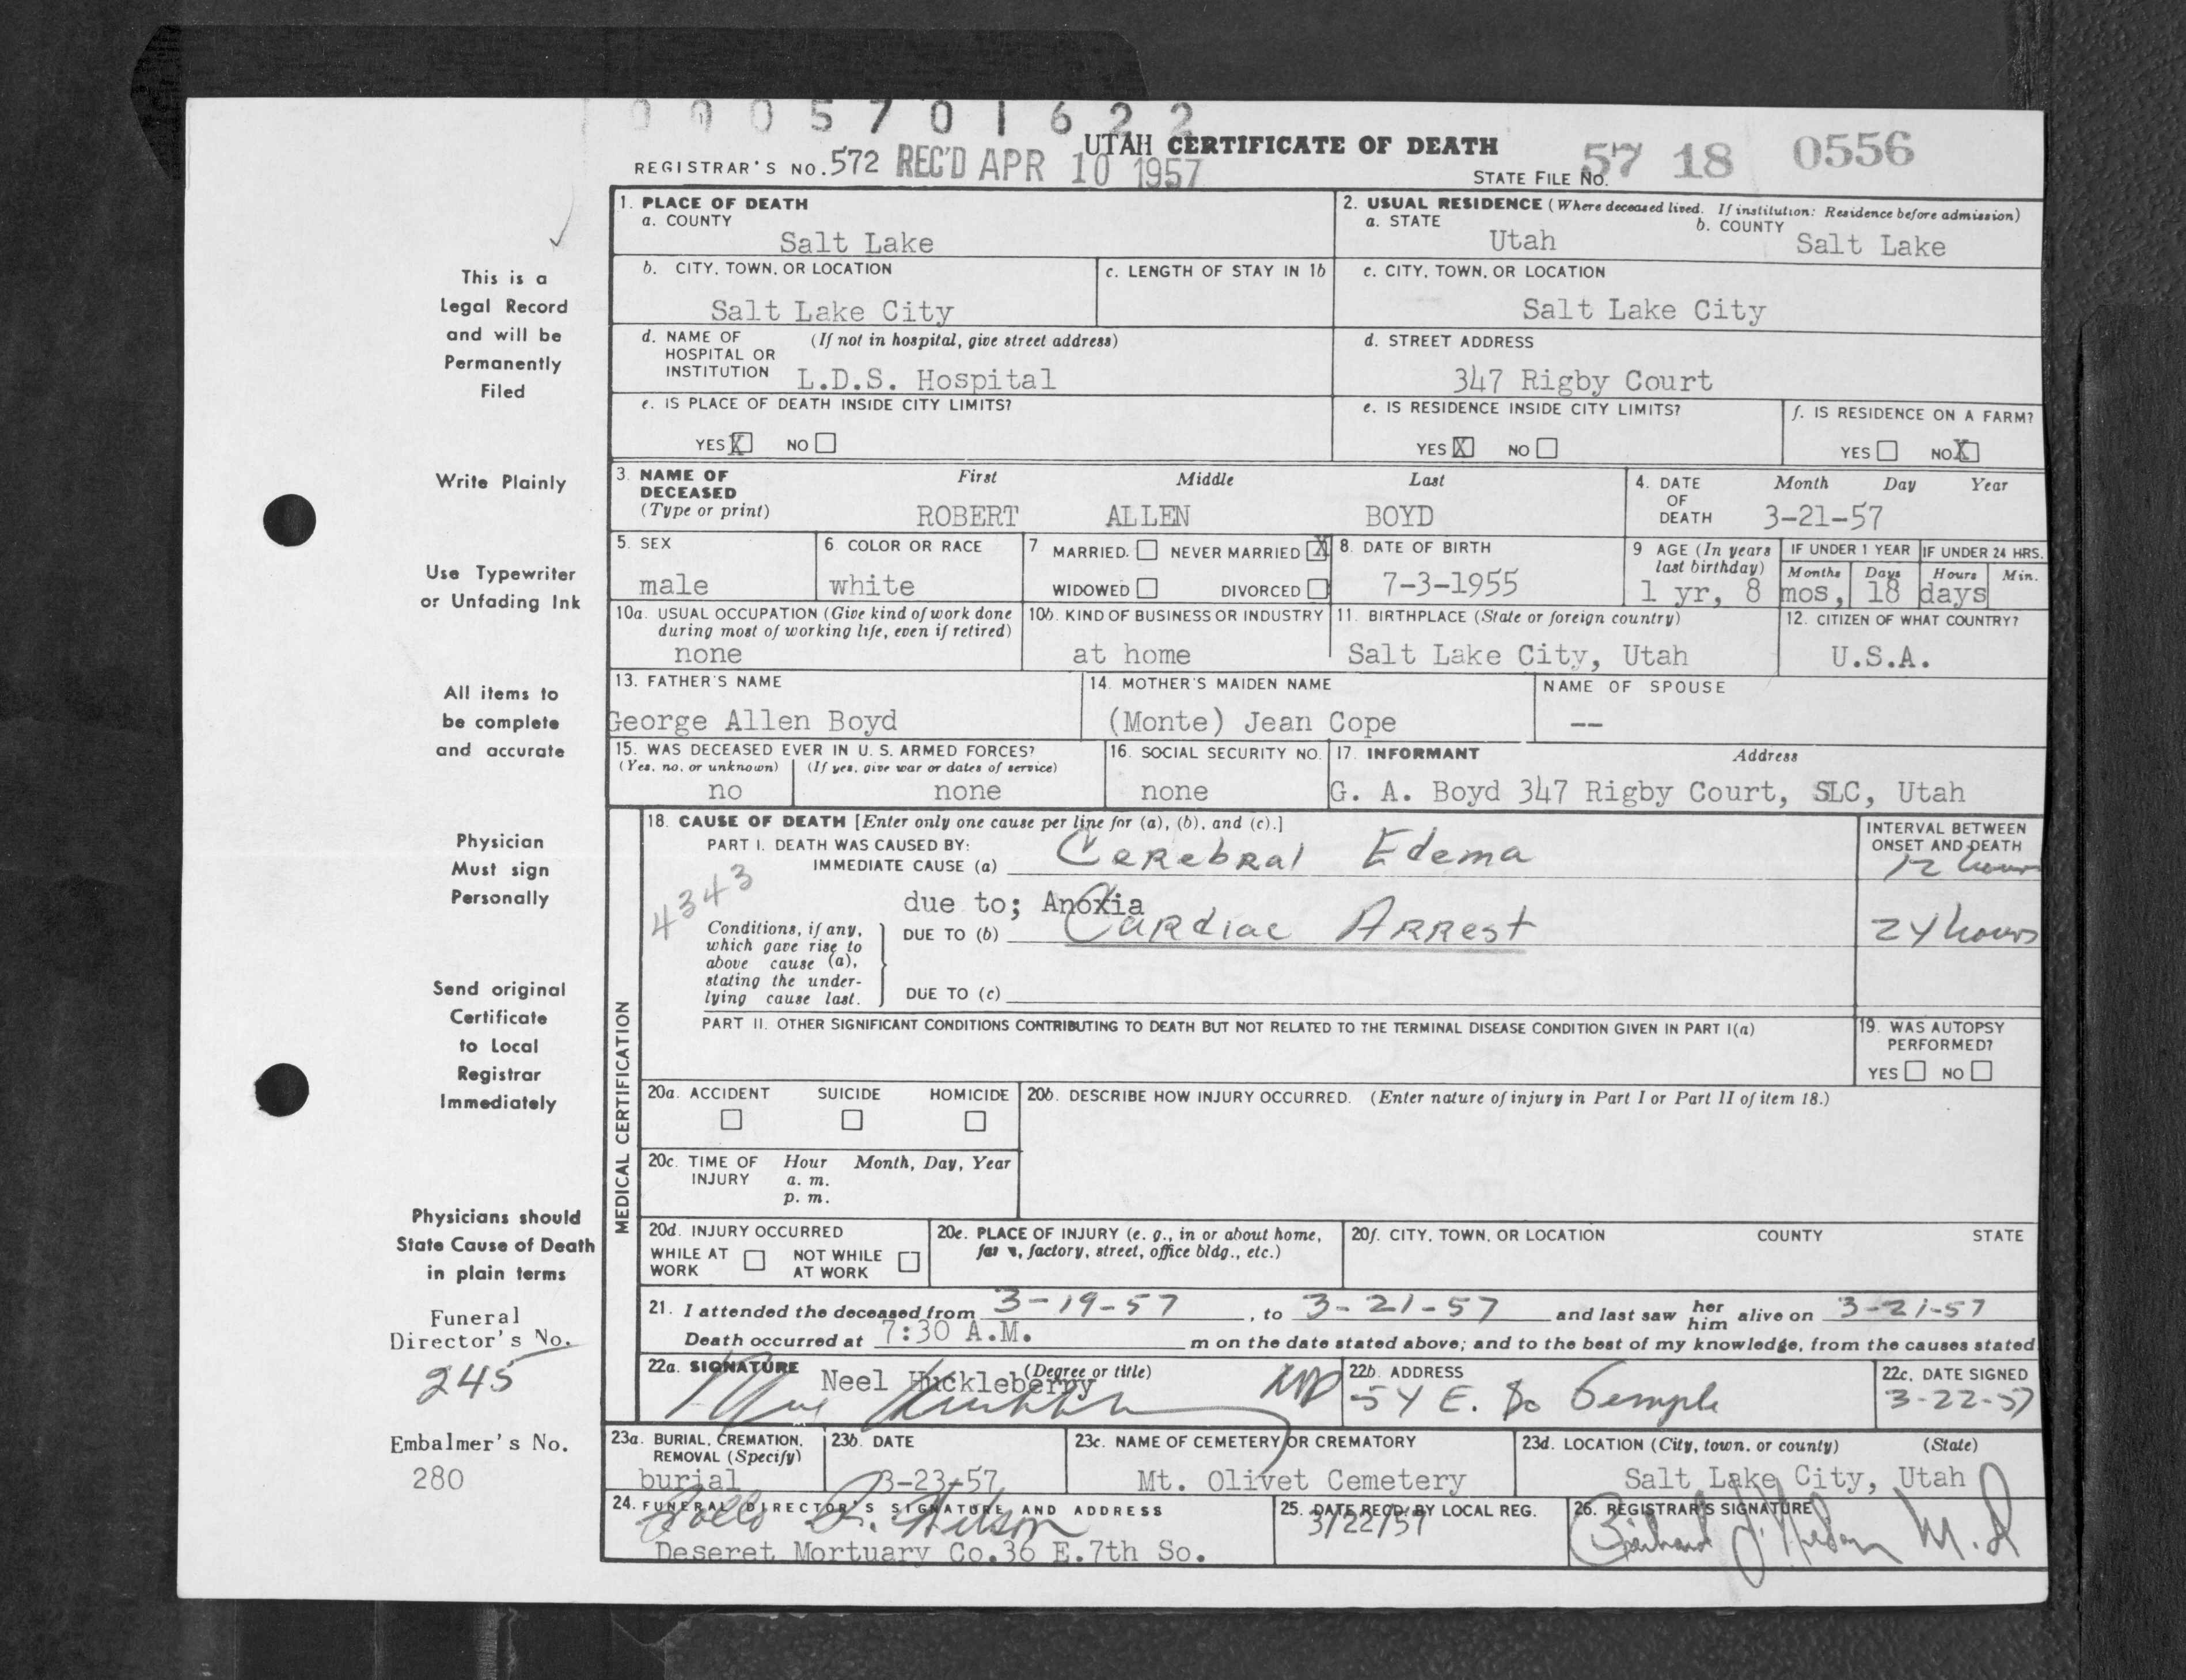 0005701622
UTAH CERTIFICATE OF DEATH
REGISTRAR'S NO. 572 REC'D APR 10 1957
STATE FILE NO. 57 18 0556
1. PLACE OF DEATH
a. COUNTY
Salt Lake
2. USUAL RESIDENCE (Where deceased lived. If institution: Residence before admission)
a. STATE
Utah
b. COUNTY
Salt Lake
b. CITY, TOWN, OR LOCATION
Salt Lake City
c. LENGTH OF STAY IN 1b
c. CITY, TOWN, OR LOCATION
Salt Lake City
d. NAME OF HOSPITAL OR INSTITUTION
(If not in hospital, give street address)
L.D.S. Hospital
d. STREET ADDRESS
347 Rigby Court
e. IS PLACE OF DEATH INSIDE CITY LIMITS?
YES X NO
e. IS RESIDENCE INSIDE CITY LIMITS?
YES X NO
f. IS RESIDENCE ON A FARM?
YES NO X
3. NAME OF DECEASED (Type or print)
First Middle Last
ROBERT ALLEN BOYD
4. DATE OF DEATH
Month Day Year
3-21-57
5. SEX
male
6. COLOR OR RACE
white
7. MARRIED. NEVER MARRIED X
WIDOWED DIVORCED
8. DATE OF BIRTH
7-3-1955
9 AGE (In years last birthday)
IF UNDER 1 YEAR IF UNDER 24 HRS.
Months Days Hours Min.
1 yr, 8 mos, 18 days
10a. USUAL OCCUPATION (Give kind of work done during most of working life, even if retired)
none
10b. KIND OF BUSINESS OR INDUSTRY
at home
11. BIRTHPLACE (State or foreign country)
Salt Lake City, Utah
12. CITIZEN OF WHAT COUNTRY?
U.S.A.
13. FATHER'S NAME
George Allen Boyd
14. MOTHER'S MAIDEN NAME
(Monte) Jean Cope
NAME OF SPOUSE
--
15. WAS DECEASED EVER IN U. S. ARMED FORCES?
(Yes, no, or unknown) (If yes, give war or dates of service)
no none
16. SOCIAL SECURITY NO.
none
17. INFORMANT Address
G. A. Boyd 347 Rigby Court, SLC, Utah
MEDICAL CERTIFICATION
18. CAUSE OF DEATH [Enter only one cause per line for (a), (b), and (c).]
PART I. DEATH WAS CAUSED BY:
IMMEDIATE CAUSE (a) Cerebral Edema
INTERVAL BETWEEN ONSET AND DEATH
12 hours
4343
due to; Anoxia
Conditions, if any, which gave rise to above cause (a), stating the underlying cause last.
DUE TO (b) Cardiac Arrest
24 hours
DUE TO (c)
PART II. OTHER SIGNIFICANT CONDITIONS CONTRIBUTING TO DEATH BUT NOT RELATED TO THE TERMINAL DISEASE CONDITION GIVEN IN PART I(a)
19. WAS AUTOPSY PERFORMED?
YES NO
20a. ACCIDENT SUICIDE HOMICIDE
20b. DESCRIBE HOW INJURY OCCURRED. (Enter nature of injury in Part I or Part II of item 18.)
20c. TIME OF INJURY
Hour Month, Day, Year
a. m.
p. m.
20d. INJURY OCCURRED
WHILE AT WORK NOT WHILE AT WORK
20e. PLACE OF INJURY (e. g., in or about home, farm, factory, street, office bldg., etc.)
20f. CITY, TOWN, OR LOCATION COUNTY STATE
21. I attended the deceased from 3-19-57, to 3-21-57 and last saw her him alive on 3-21-57
Death occurred at 7:30 A.M. m on the date stated above; and to the best of my knowledge, from the causes stated
22a. SIGNATURE (Degree or title)
Neel Huckleberry
MD
22b. ADDRESS
54 E. So Temple
22c. DATE SIGNED
3-22-57
23a. BURIAL, CREMATION, REMOVAL (Specify)
burial
23b. DATE
3-23-57
23c. NAME OF CEMETERY OR CREMATORY
Mt. Olivet Cemetery
23d. LOCATION (City, town, or county) (State)
Salt Lake City, Utah
24. FUNERAL DIRECTOR'S SIGNATURE AND ADDRESS
Deseret Mortuary Co. 36 E. 7th So.
25. DATE REC'D. BY LOCAL REG.
3/22/57
26. REGISTRAR'S SIGNATURE
M.D
This is a
Legal Record
and will be
Permanently
Filed
Write Plainly
Use Typewriter
or Unfading Ink
All items to
be complete
and accurate
Physician
Must sign
Personally
Send original
Certificate
to Local
Registrar
Immediately
Physicians should
State Cause of Death
in plain terms
Funeral
Director's No.
245
Embalmer's No.
280